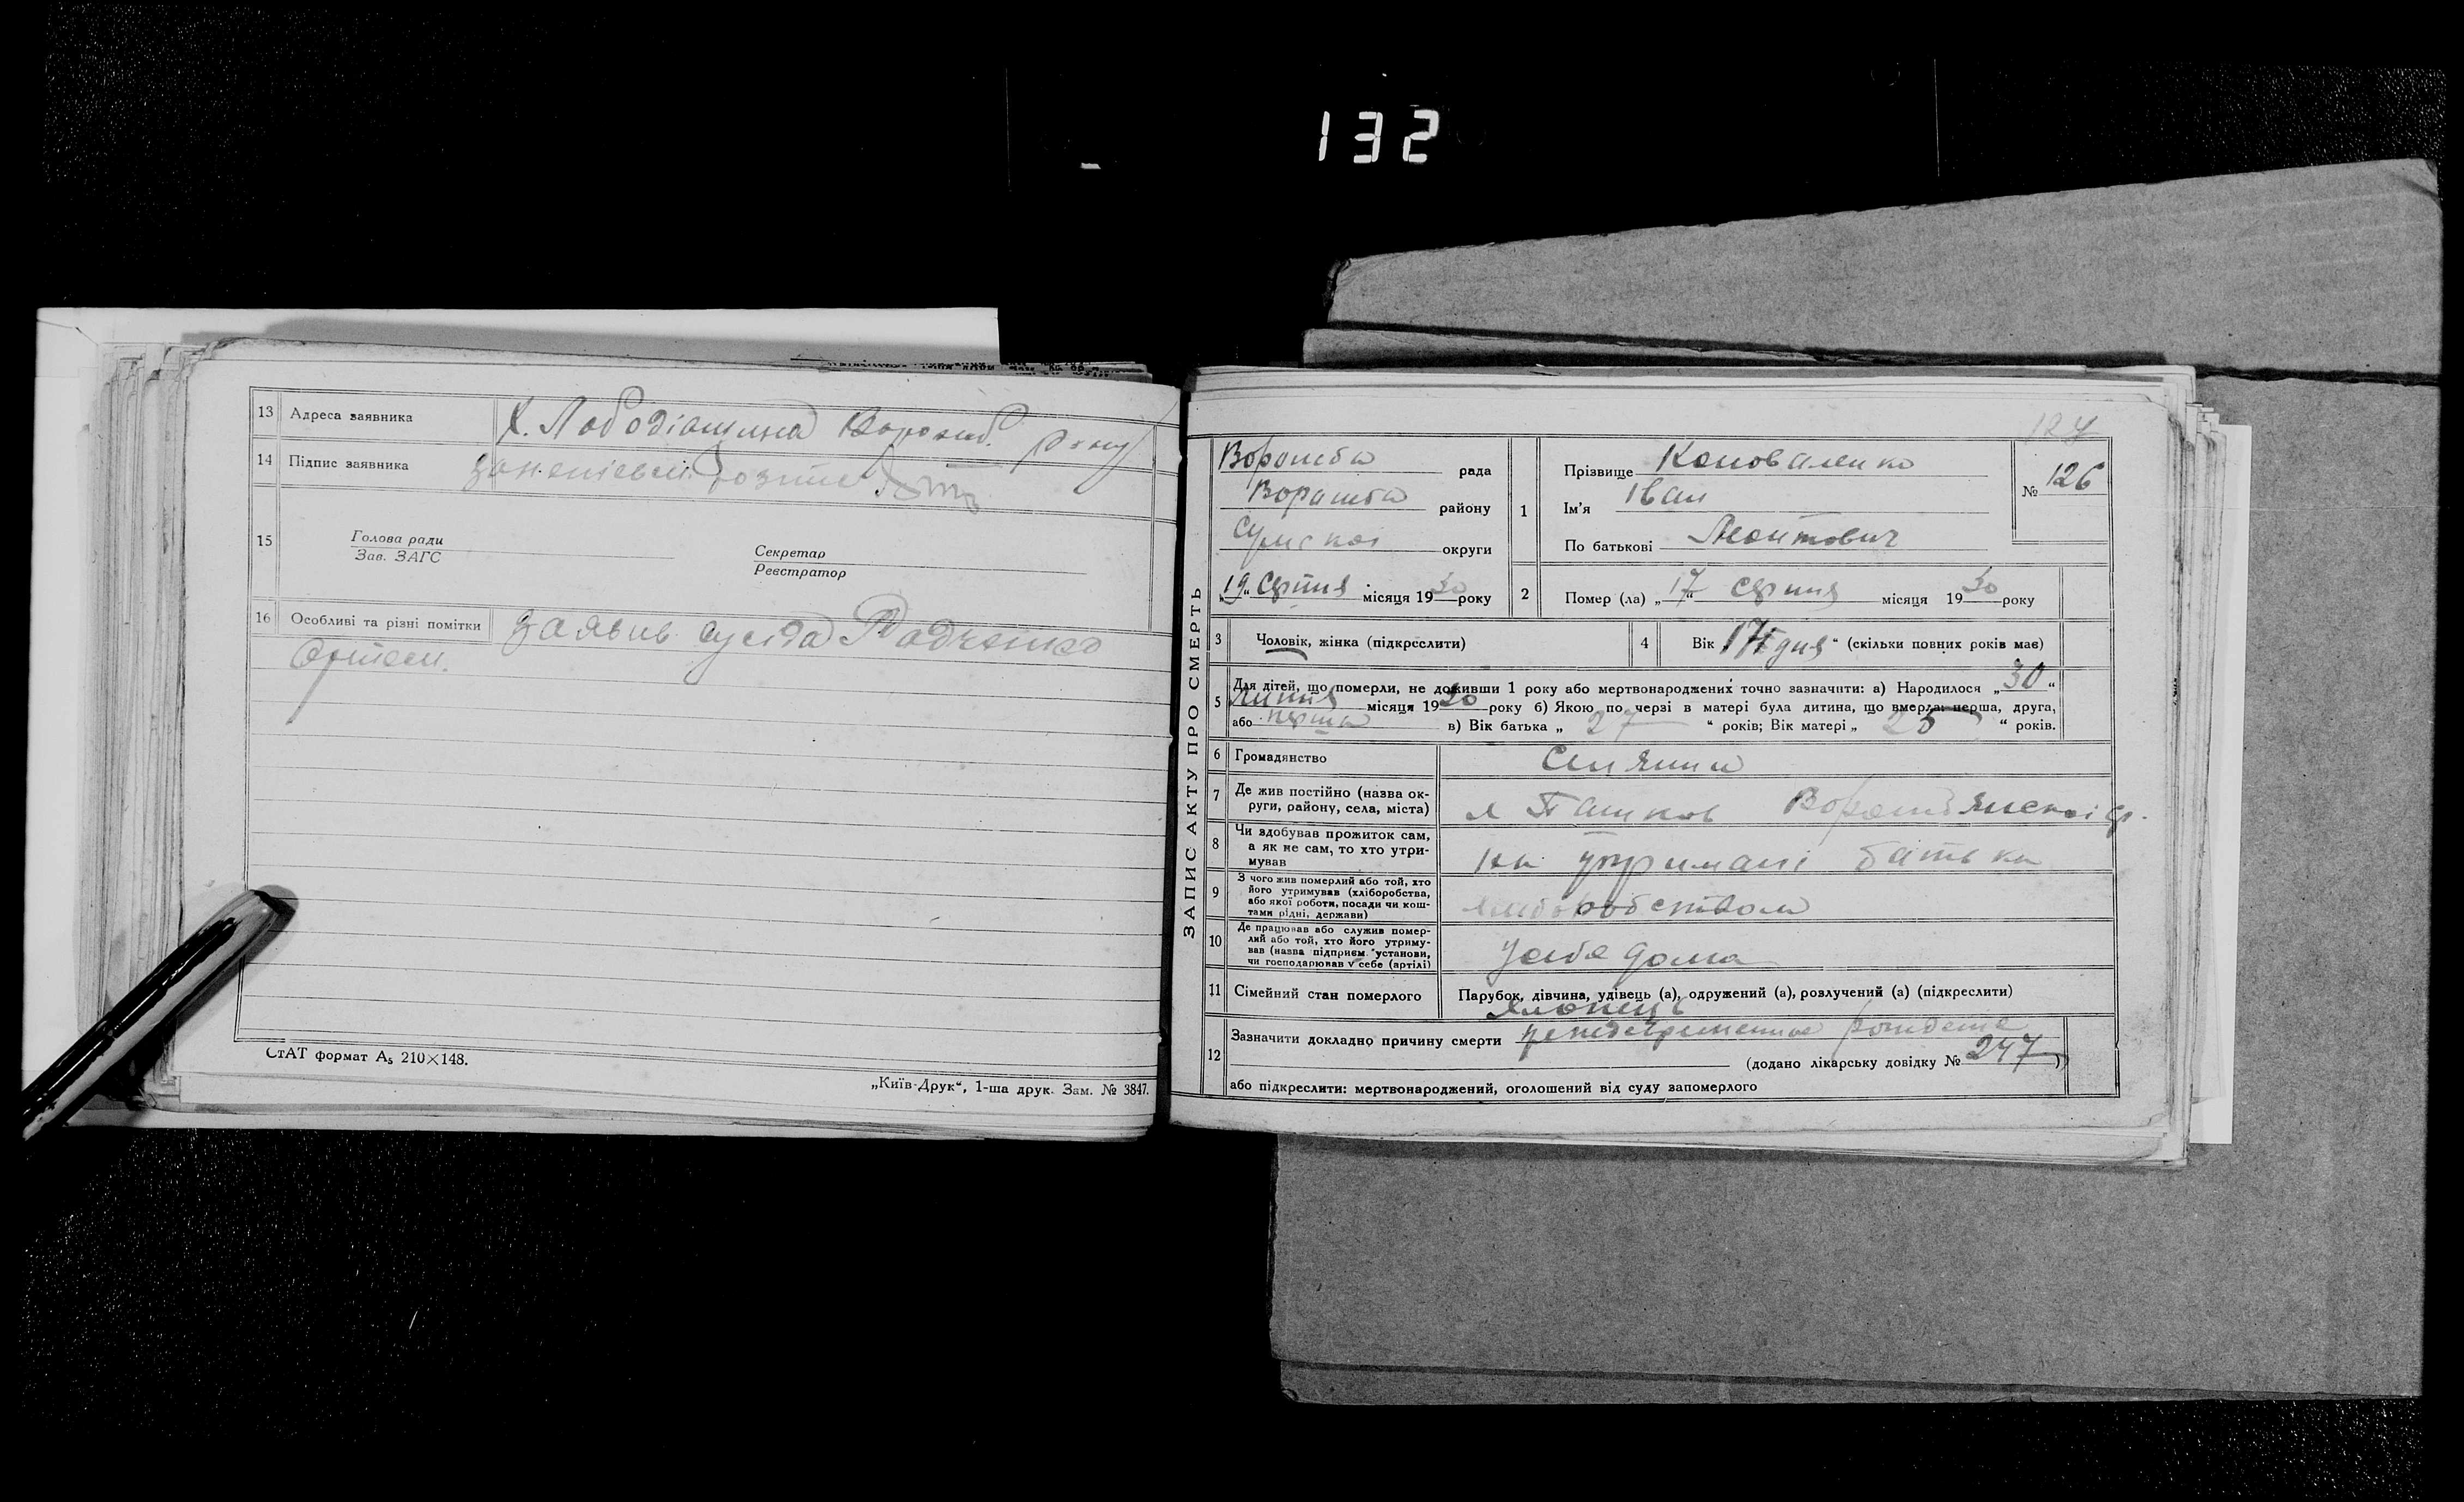 132
13 Адреса заявника Х. ЛободіащинаВорожб. р-ну
14 Підпис заявника
15 Голова ради
Зав. ЗАГС
Секретар
Реєстратор
16 Особливі та різні помітки заявив сусіда Радченко
СтАТ формат А₅ 210×148.
„Київ-Друк“, 1-ша друк. Зам. № 3847.
ЗАПИС АКТУ ПРО СМЕРТЬ
Ворожба рада
Ворожба району
Сумскої округи
„19“ Серпня місяця 1930 року
1 Прізвище Коноваленко
Ім'я Іван
По батькові
№ 126
2 Помер (ла) „17“ Серпня місяця 1930 року
3 Чоловік, жінка (підкреслити)
4 Вік „17 дня“ (скільки повних років має)
5 Для дітей, що померли, не доживши 1 року або мертвонароджених точно зазначити: а) Народилося „30“
Липня місяця 1930 року б) Якою по черзі в матері була дитина, що вмерла: перша, друга,
або перша в) Вік батька „27“ років; Вік матері „25“ років.
6 Громадянство
7 Де жив постійно (назва ок-
руги, району, села, міста)
8 Чи здобував прожиток сам,
а як не сам, то хто утри-
мував
на утримані батька
9 З чого жив померлий або той, хто
його утримував (хліборобства,
або якої роботи, посади чи кош-
тами рідні, держави)
хлиборобством
10 Де працював або служив помер-
лий або той, хто його утриму-
вав (назва підприєм. установи,
чи господарював у себе (артілі)
у себе дома
11 Сімейний стан померлого
Парубок, дівчина, удівець (а), одружений (а), розлучений (а) (підкреслити)
Хлопець
12 Зазначити докладно причину смерти
(додано лікарську довідку № 247)
або підкреслити: мертвонароджений, оголошений від суду запомерлого